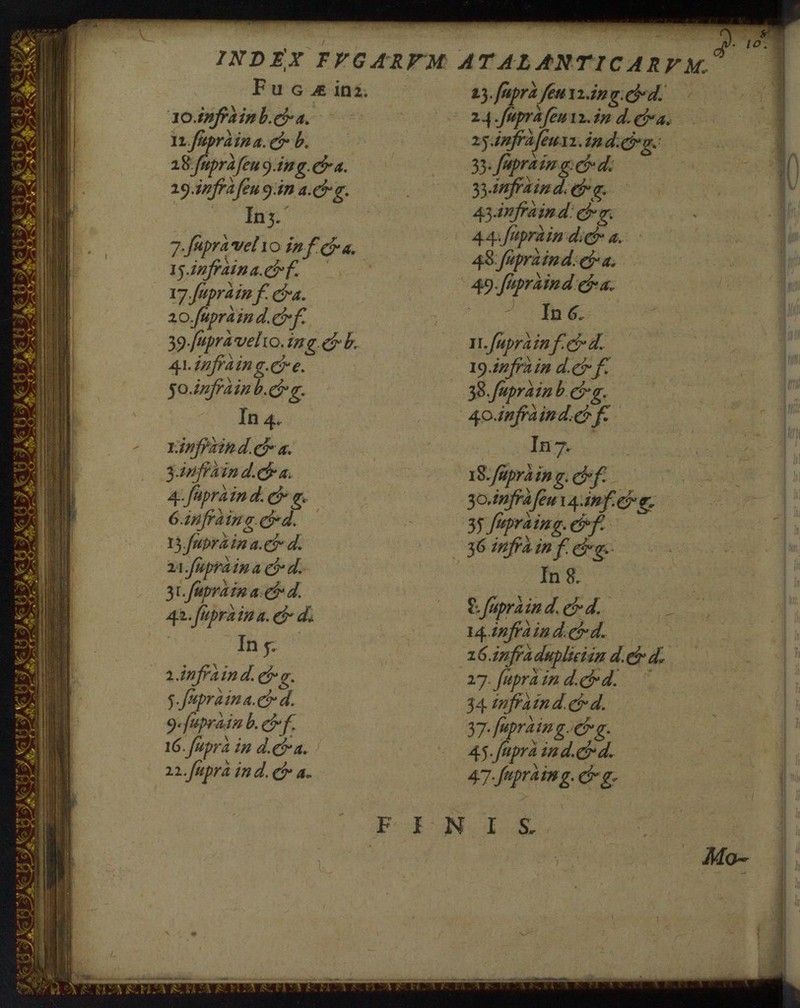 INDEX FVGARVM ATALANTICARVM.
Fugæ in 2.
10. infrà in b. & a.
12. ſuprà in a. & b.
28. ſuprà ſeu 9. in g. & a.
29. infrà ſeu 9. in a. & g.
In 3.
7. ſuprà vel 10 in f. & a.
15. infrà in a. & f.
17. ſuprà in f. & a.
20. ſuprà in d. & f.
39. ſuprà vel 10. in g. & b.
41. infrà in g. & e.
50. infrà in b. & g.
In 4.
1. infrà in d. & a.
3. infrà in d. & a.
4. ſuprà in d. & g.
6. infrà in g. & d.
13. ſuprà in a. & d.
21. ſuprà in a & d.
31. ſuprà in a. & d.
42. ſuprà in a. & d.
In 5.
2. infrà in d. & g.
5. ſuprà in a. & d.
9. ſuprà in b. & f.
16. ſuprà in d. & a.
22. ſuprà in d. & a.
23. ſuprà ſeu 12. in g. & d.
24. ſuprà ſeu 12. in d. & a.
25. infrà ſeu 12. in d. & g.
33. ſuprà in g. & d.
33. infrà in d. & g.
43. infrà in d. & g.
44. ſuprà in d. & a.
48. ſuprà in d. & a.
49. ſuprà in d & a.
In 6.
11. ſuprà in f. & d.
19. infrà in d. & f.
38. ſuprà in b. & g.
40. infrà in d. & f.
In 7.
18. ſuprà in g. & f.
30. infrà ſeu 14. in f. & g.
35 ſuprà in g. & f.
36 infrà in f. & g.
In 8.
8. ſuprà in d. & d.
14. infrà in d. & d.
26. infrà dupliciin d. & d.
27. ſuprà in d. & d.
34 infrà in d. & d.
37. ſuprà in g. & g.
45. ſuprà in d. & d.
47. ſuprà in g. & g.
FINIS.
Mo-